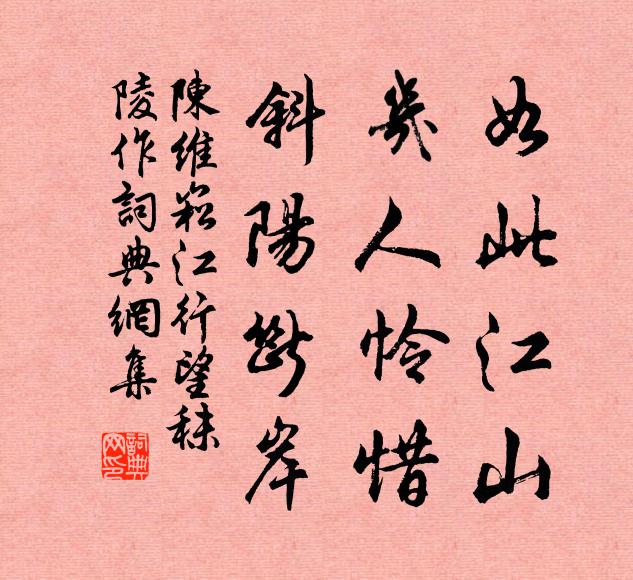 如此江山
幾人怜惜
斜陽斷岸
陳維崧江行望秣
陵作詞典網集
詞典網印